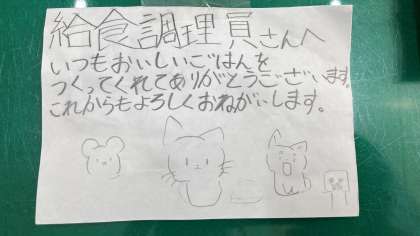 給食調理員さんへ
いつもおいしいごはんを
つくってくれてありがとうございます。
これからもよろしくおねがいします。